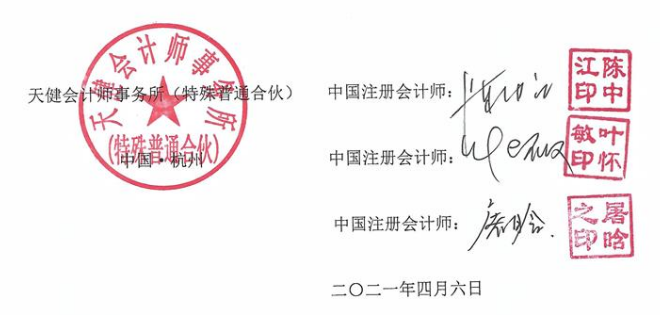 天健会计师事务所
天健会计师事务所（特殊普通合伙）
(特殊普通合伙)
中国·杭州
中国注册会计师：
陈中
江印
中国注册会计师：
叶怀
敏印
中国注册会计师：
屠晗
之印
二〇二一年四月六日